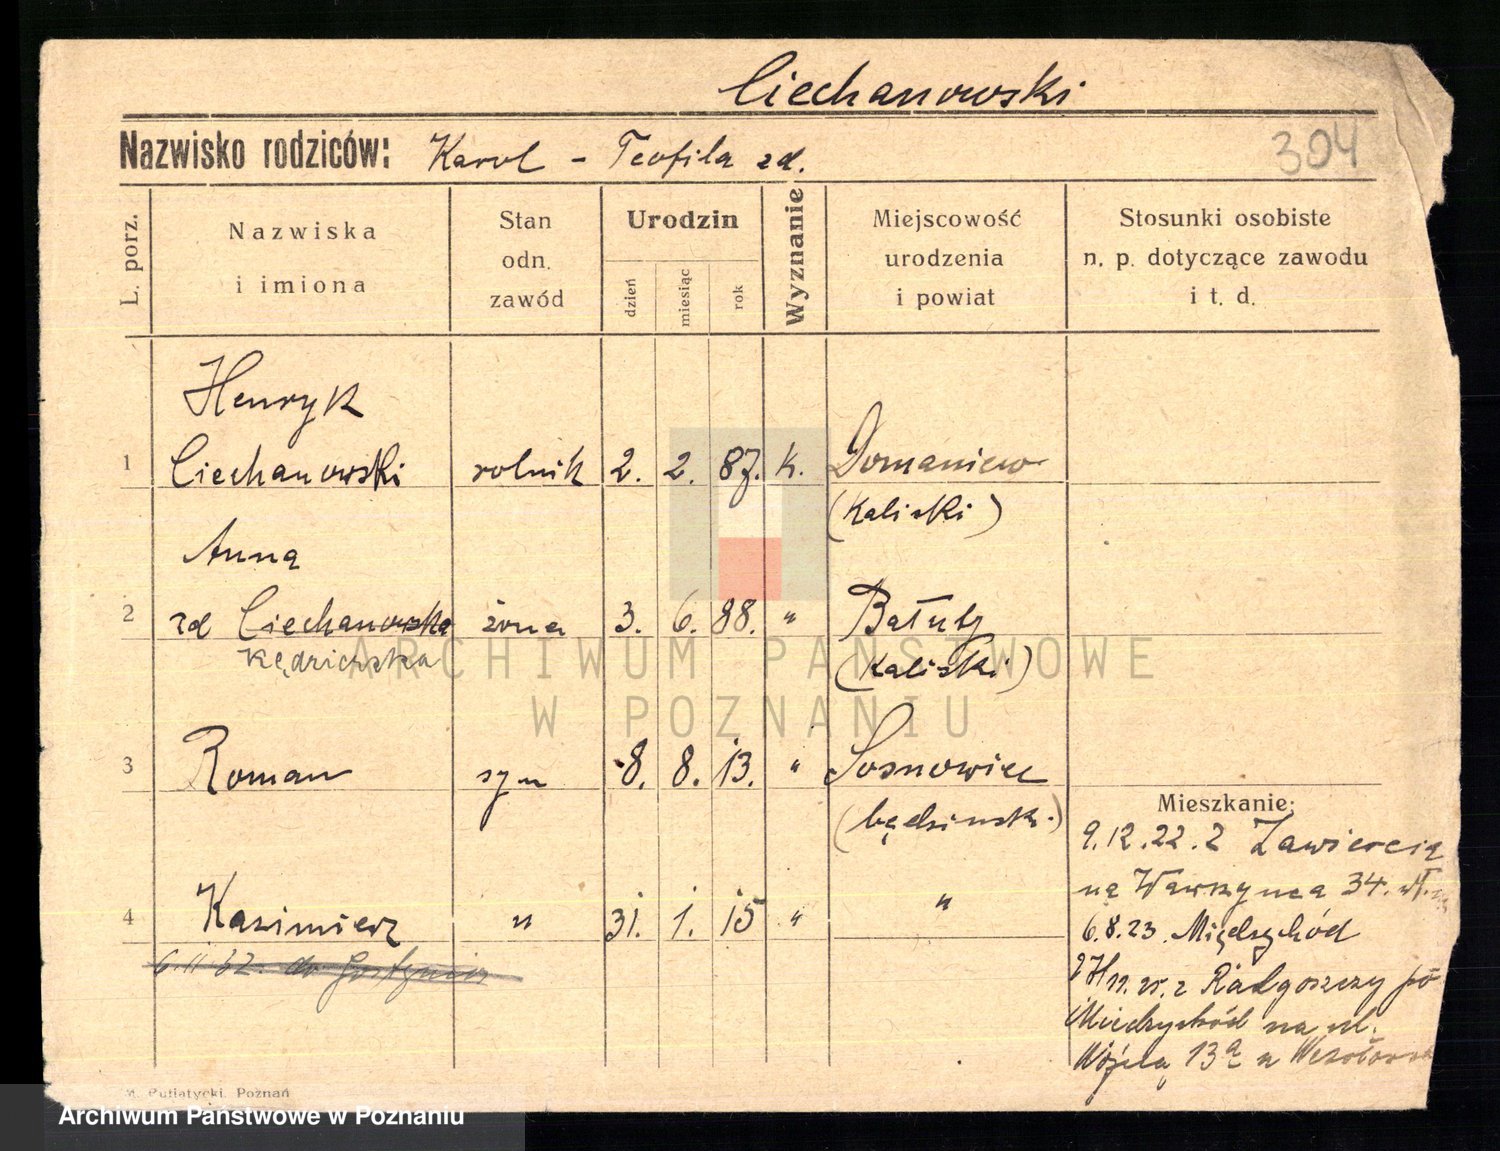 Ciechanowski
Nazwisko rodziców: Karol - Teofila zd.
304
L. porz.
Nazwiska
i imiona
Stan
odn.
zawód
Urodzin
dzień
miesiąc
rok
Wyznanie
Miejscowość
urodzenia
i powiat
Stosunki osobiste
n. p. dotyczące zawodu
i t. d.
Henryk
1 Ciechanowski rolnik 2. 2. 87. k. Domaniew
(Kaliski)
Anna
2 zd Ciechanowska żona 3. 6. 88. " Bałuty
Kędzierska (Kaliski)
3 Roman syn 8. 8. 13. " Sosnowiec
(będzinsk.)
Mieszkanie:
9.12.22. z Zawiercia
na Wawrzynca 34.
4 Kazimierz " 31. 1. 15 " "
6.8.23. Międzychód
6.11 32. do Gostynia
z Radgoszczy po
Międzychód na ul.
13a u
M. Putiatycki, Poznań
ARCHIWUM PAŃSTWOWE
W POZNANIU
Archiwum Państwowe w Poznaniu